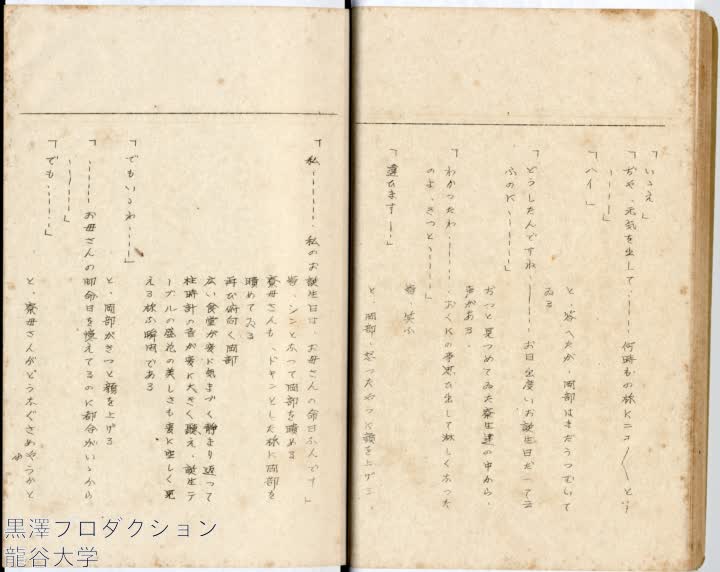 「いゝえ」
「ぢや、元気を出して、……何時もの様にニコ〳〵と、
……」
「ハイ」
と、答へたが、岡部はまだうつむいて
ゐる
「どうしたんですね ――― お目出度いお誕生日だって云
ふのに………」
ぢっと見つめてゐた寮生達の中から、
声がある、
「わかつたわ、……、おくにの事思ひ出して淋しくなつた
のよ、きつと………」
皆、笑ふ
「違ひます――」
と、岡部、怒つたやうに顔を上げる、
「私………、私のお誕生日は、お母さんの命日なんです」
皆、シンとなつて岡部を瞶める
寮母さんも、ドキンとした様に岡部を
瞶めてゐる
再び俯向く岡部
広い食堂が変に気まづく静まり返って
柱時計の音が変に大きく聴え、誕生テ
ーブルの盛花の美しさも変に空しく見
える様な瞬間である
「でもいゝわ……」
と、岡部がきつと顔を上げる
「……… お母さんの御命日を憶えてるのに都合がいゝから
………」
「でも……」
と、寮母さんがどうなぐさめやうかと
黒澤プロダクション
龍谷大学